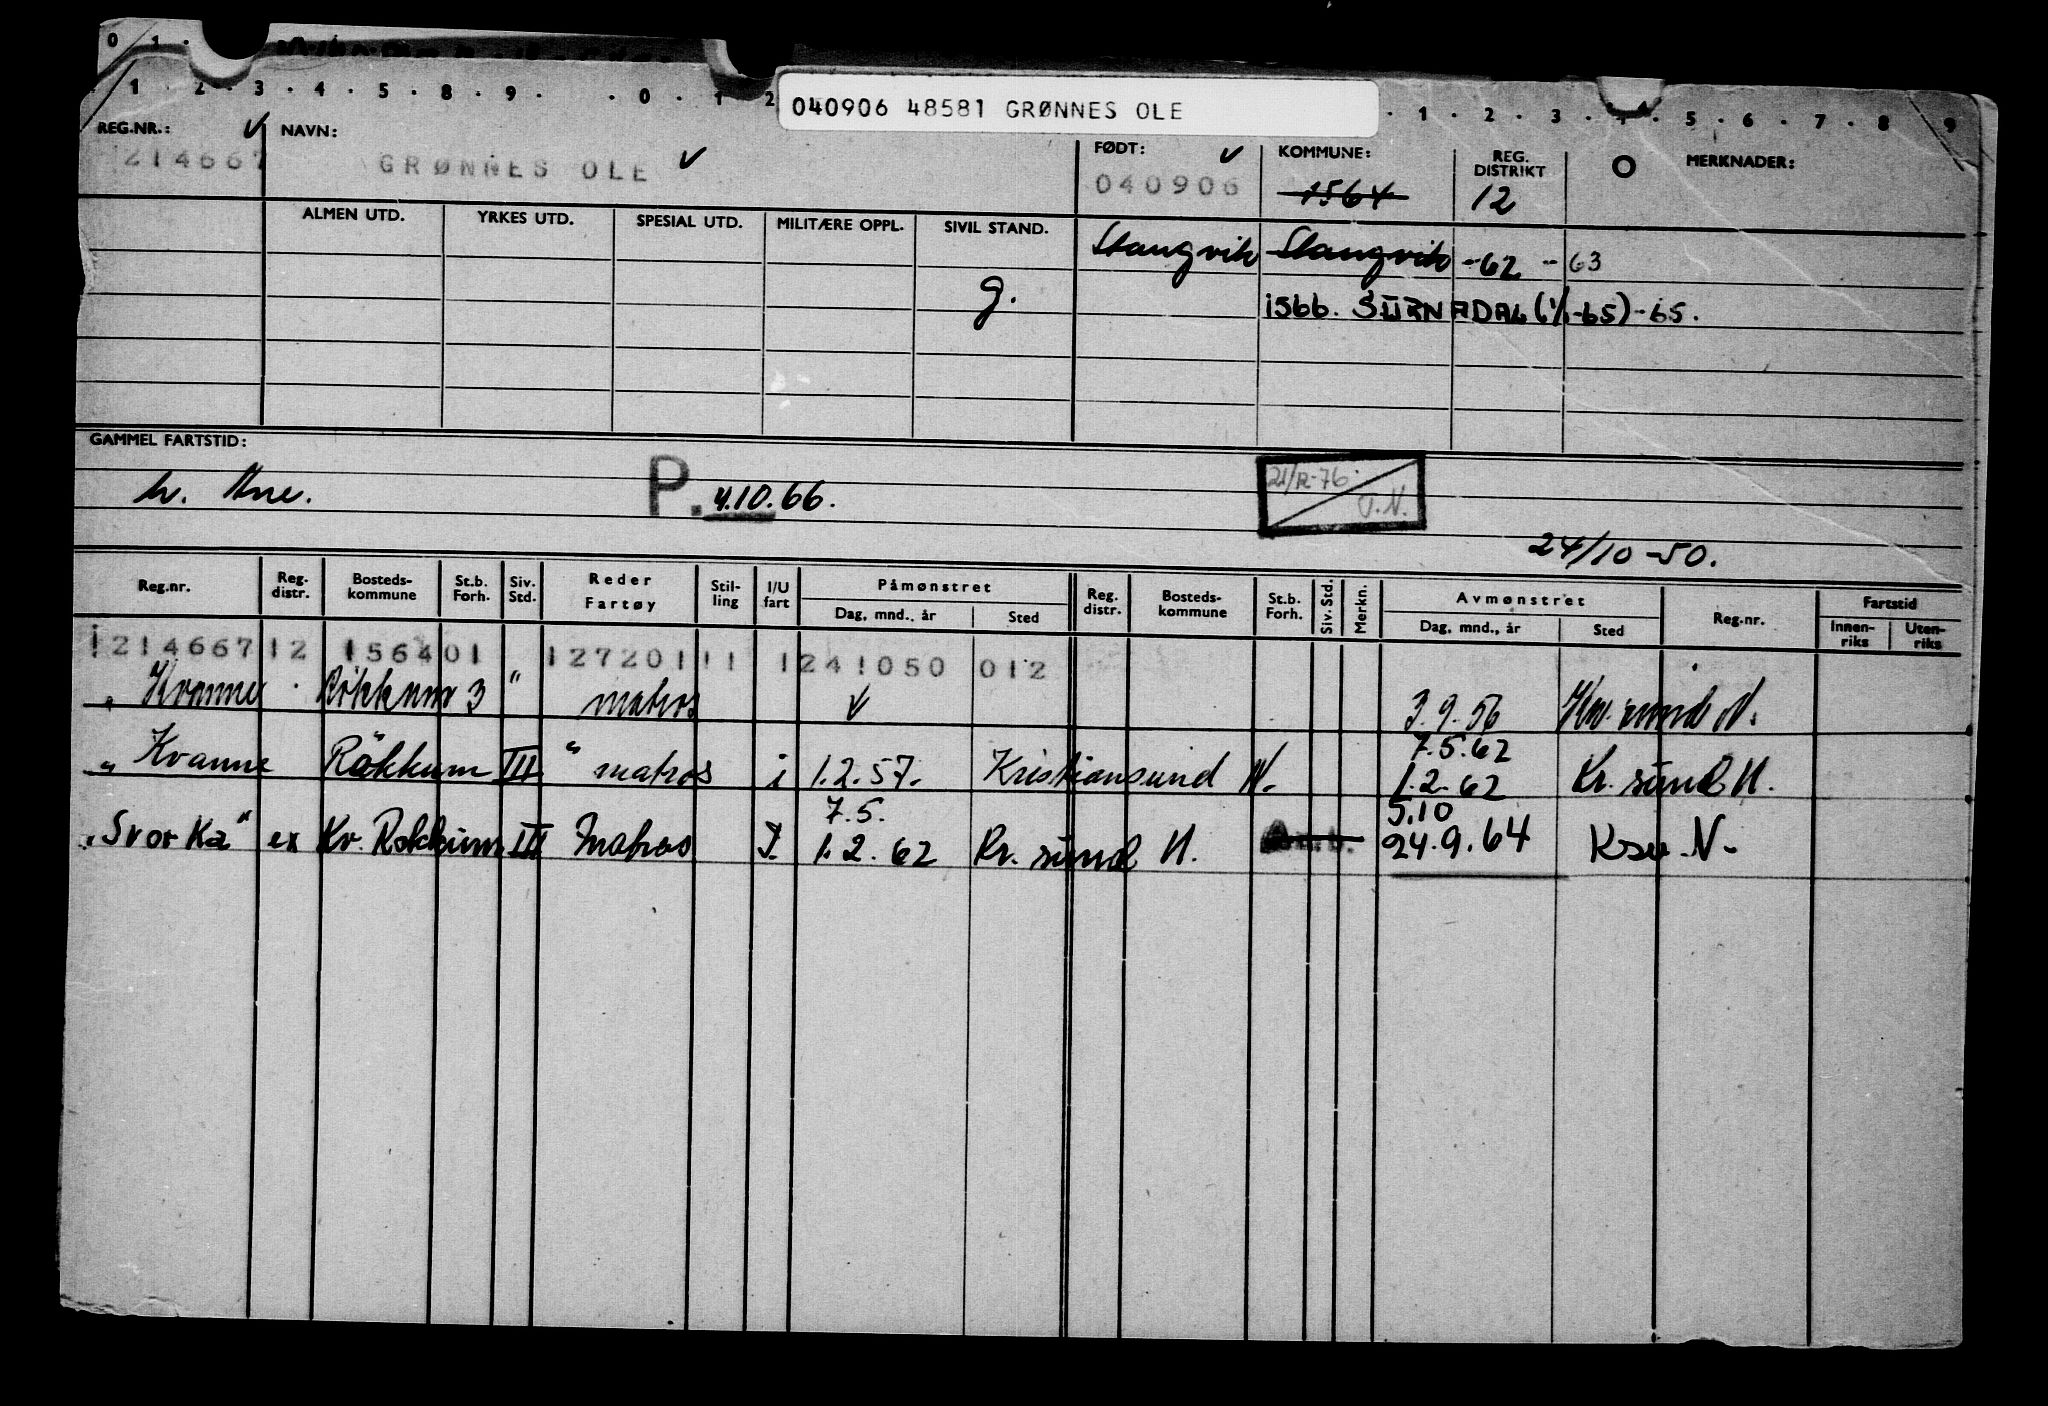 0 1 .
1 . 2 . 3 . 4 . 5 . 8 . 9 . . 0 . 1 2 . 1 . 2 . 3 . 4 . 5 . 6 . 7 . 8 9
040906 48581 GRØNNES OLE
REG.NR.: NAVN: FØDT: KOMMUNE: REG. DISTRIKT MERKNADER:
214667 GRØNNES OLE 040906 1564 12
ALMEN UTD. YRKES UTD. SPESIAL UTD. MILITÆRE OPPL. SIVIL STAND.
Stangvik Stangvik -62 -63
g. 1566. SURNADAL (1/1-65)-65.
GAMMEL FARTSTID:
P. 4.10.66. 21/12-76 T.N.
24/10-50.
Reg.nr. Reg. distr. Bosteds- kommune St.b. Forh. Siv. Std. Reder Fartøy Stil- ling I/U fart Påmønstret Dag, mnd., år Sted Reg. distr. Bosteds- kommune St.b. Forh. Siv. Std. Merkn. Avmønstret Dag, mnd., år Sted Reg.nr. Fartstid Innen- riks Uten- riks
1214667 12 156401 1272011 1 1241050 012
" Kvanne Røkkum 3 " matros 3.9.56 Kr. sund N.
7.5.62
" Kvanne Røkkum III " matros i 1.2.57. Kristiansund N. 1.2.62 Kr. sund N.
7.5. 5.10
"Svorka" ex Kv. Røkkum III Matros I. 1.2.62 Kr. sund N. 24.9.64 Ksu. N.